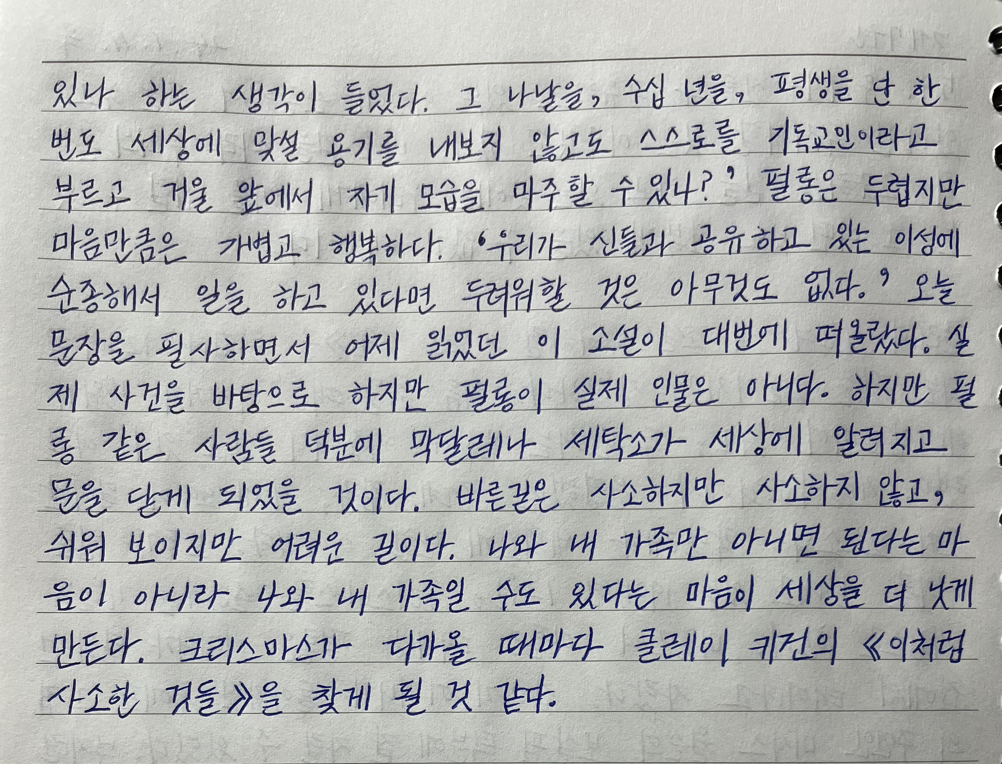 있나 하는 생각이 들었다. 그 나날을, 수십 년을, 평생을 단 한
번도 세상에 맞설 용기를 내보지 않고도 스스로를 기독교인이라고
부르고 거울 앞에서 자기 모습을 마주할 수 있나?’ 펄롱은 두렵지만
마음만큼은 가볍고 행복하다. ‘우리가 신들과 공유하고 있는 이성에
순종해서 일을 하고 있다면 두려워할 것은 아무것도 없다.’ 오늘
문장을 필사하면서 어제 읽었던 이 소설이 대번에 떠올랐다. 실
제 사건을 바탕으로 하지만 펄롱이 실제 인물은 아니다. 하지만 펄
롱 같은 사람들 덕분에 막달레나 세탁소가 세상에 알려지고
문을 닫게 되었을 것이다. 바른길은 사소하지만 사소하지 않고,
쉬워 보이지만 어려운 길이다. 나와 내 가족만 아니면 된다는 마
음이 아니라 나와 내 가족일 수도 있다는 마음이 세상을 더 낫게
만든다. 크리스마스가 다가올 때마다 클레이 키건의 《이처럼
사소한 것들》을 찾게 될 것 같다.